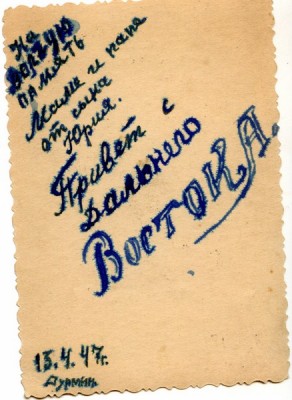 На
долгую
память
Маме и папе
от сына
Юрия.
Привет с
Дальнего
Востока.
13.4.47г.